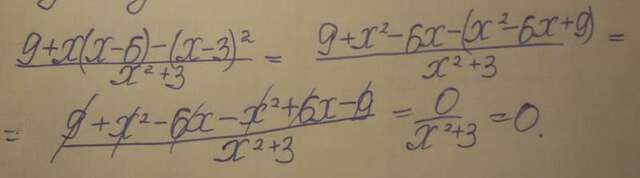 (9+x(x-6)-(x-3)²)/(x²+3) = (9+x²-6x-(x²-6x+9))/(x²+3) =
= (9+x²-6x-x²+6x-9)/(x²+3) = 0/(x²+3) = 0.